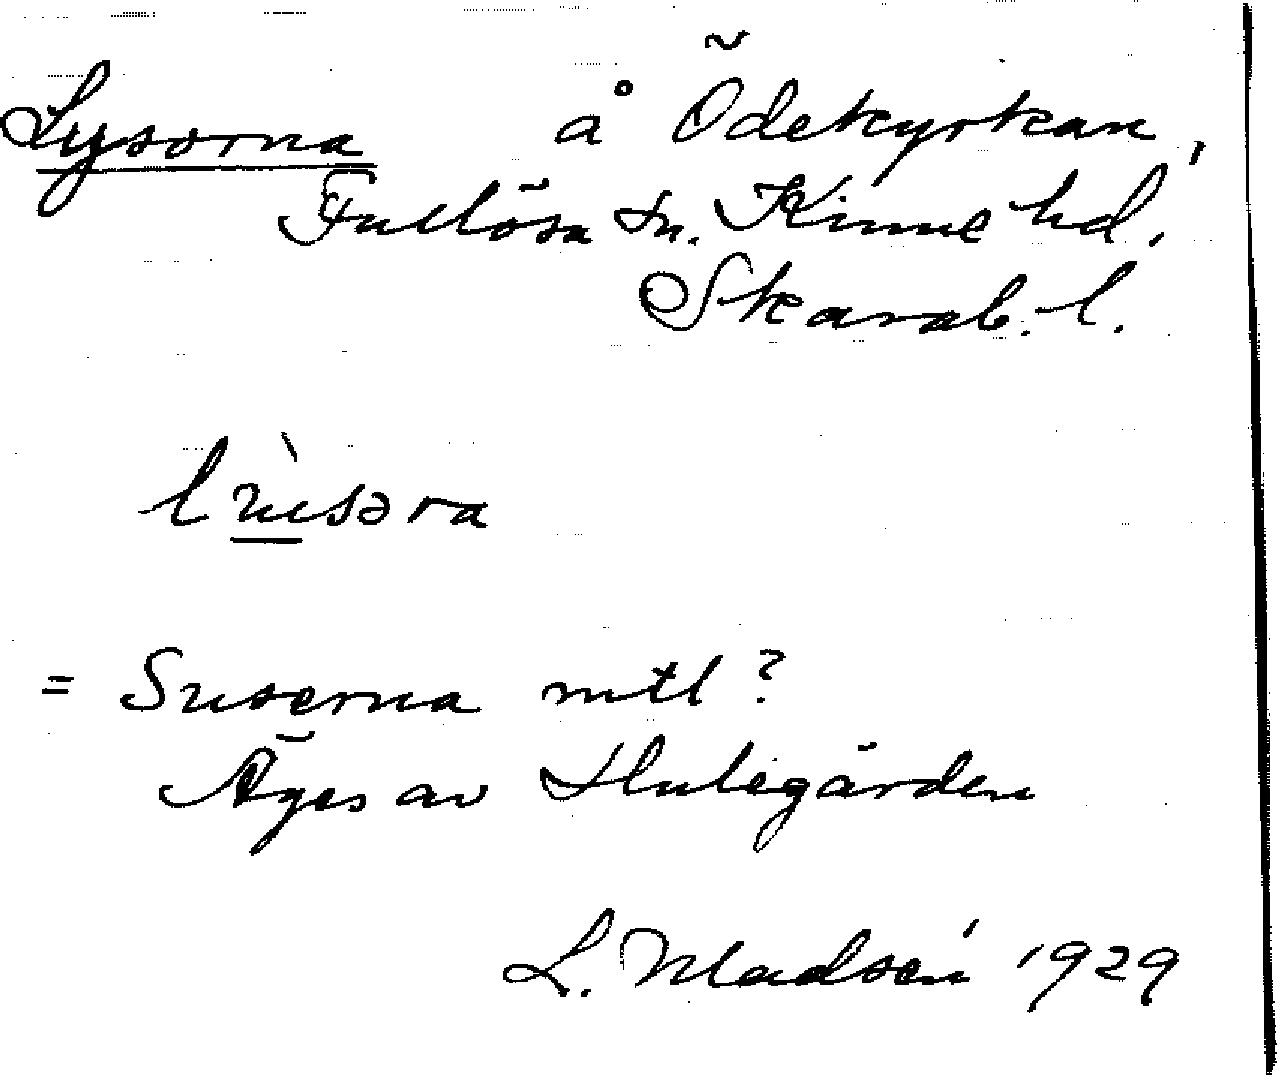 Lysorna å Ödekyrkan,
Fullösa sn. Kinne hd.
Skarab. l.
lùsəra
= Suserna mtl?
Äges av Hulegården
L. Madsén 1929